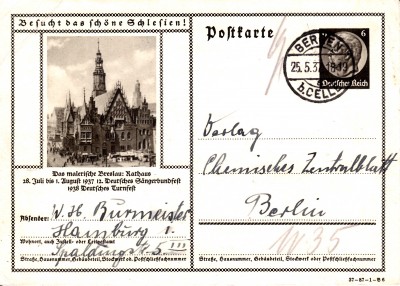 Besucht das schöne Schlesien!
Das malerische Breslau: Rathaus
28. Juli bis 1. August 1937 12. Deutsches Sängerbundfest
1938 Deutsches Turnfest
Absender: W. Hb. Burmeister
Hamburg 1.
Wohnort, auch Zustell- oder Leitpostamt
Spaldingstr. 5 III
Straße, Hausnummer, Gebäudeteil, Stockwerk od. Postschließfachnummer
Postkarte
6
Deutsches Reich
BERGEN
25.5.37
b. CELLE
Verlag
Chemisches Zentralblatt
Berlin
W 35
Straße, Hausnummer, Gebäudeteil, Stockwerk oder Postschließfachnummer
37-87-1-B6